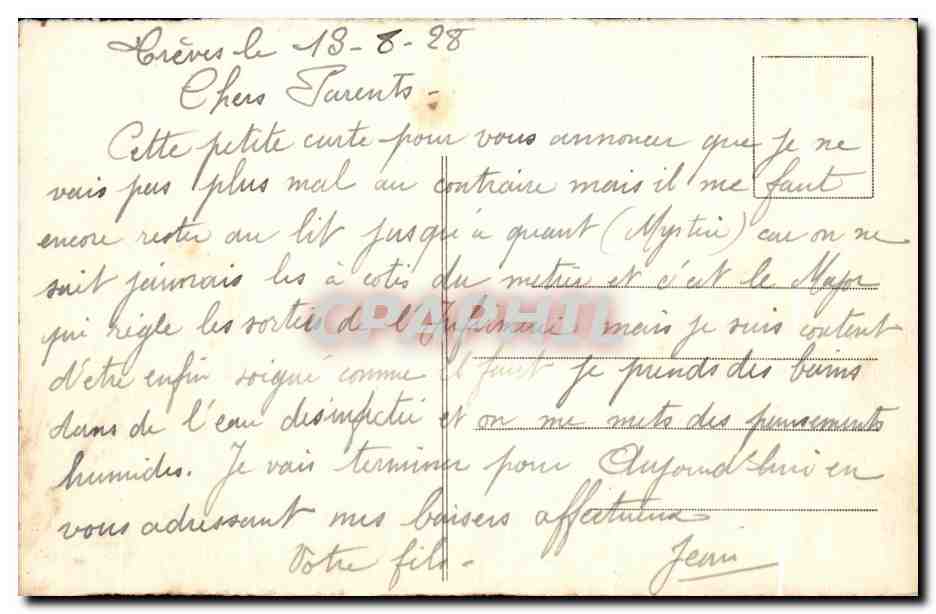 Trèves le 13-8-28
Chers Parents-
Cette petite carte pour vous annoncer que je ne
vais pas plus mal au contraire mais il me faut
encore rester au lit jusqu'à quant (Mystère) car on ne
sait jamais les à cotés du metier et c'est le Major
qui règle les sorties de l'Infirmerie. mais je suis content
d'etre enfin soigné comme il faut je prends des bains
dans de l'eau desinfectée et on me mets des pansements
humides. Je vais terminer pour Aujourd'hui en
vous adressant mes baisers affectueux
Votre fils-
Jean
CPAPHIL